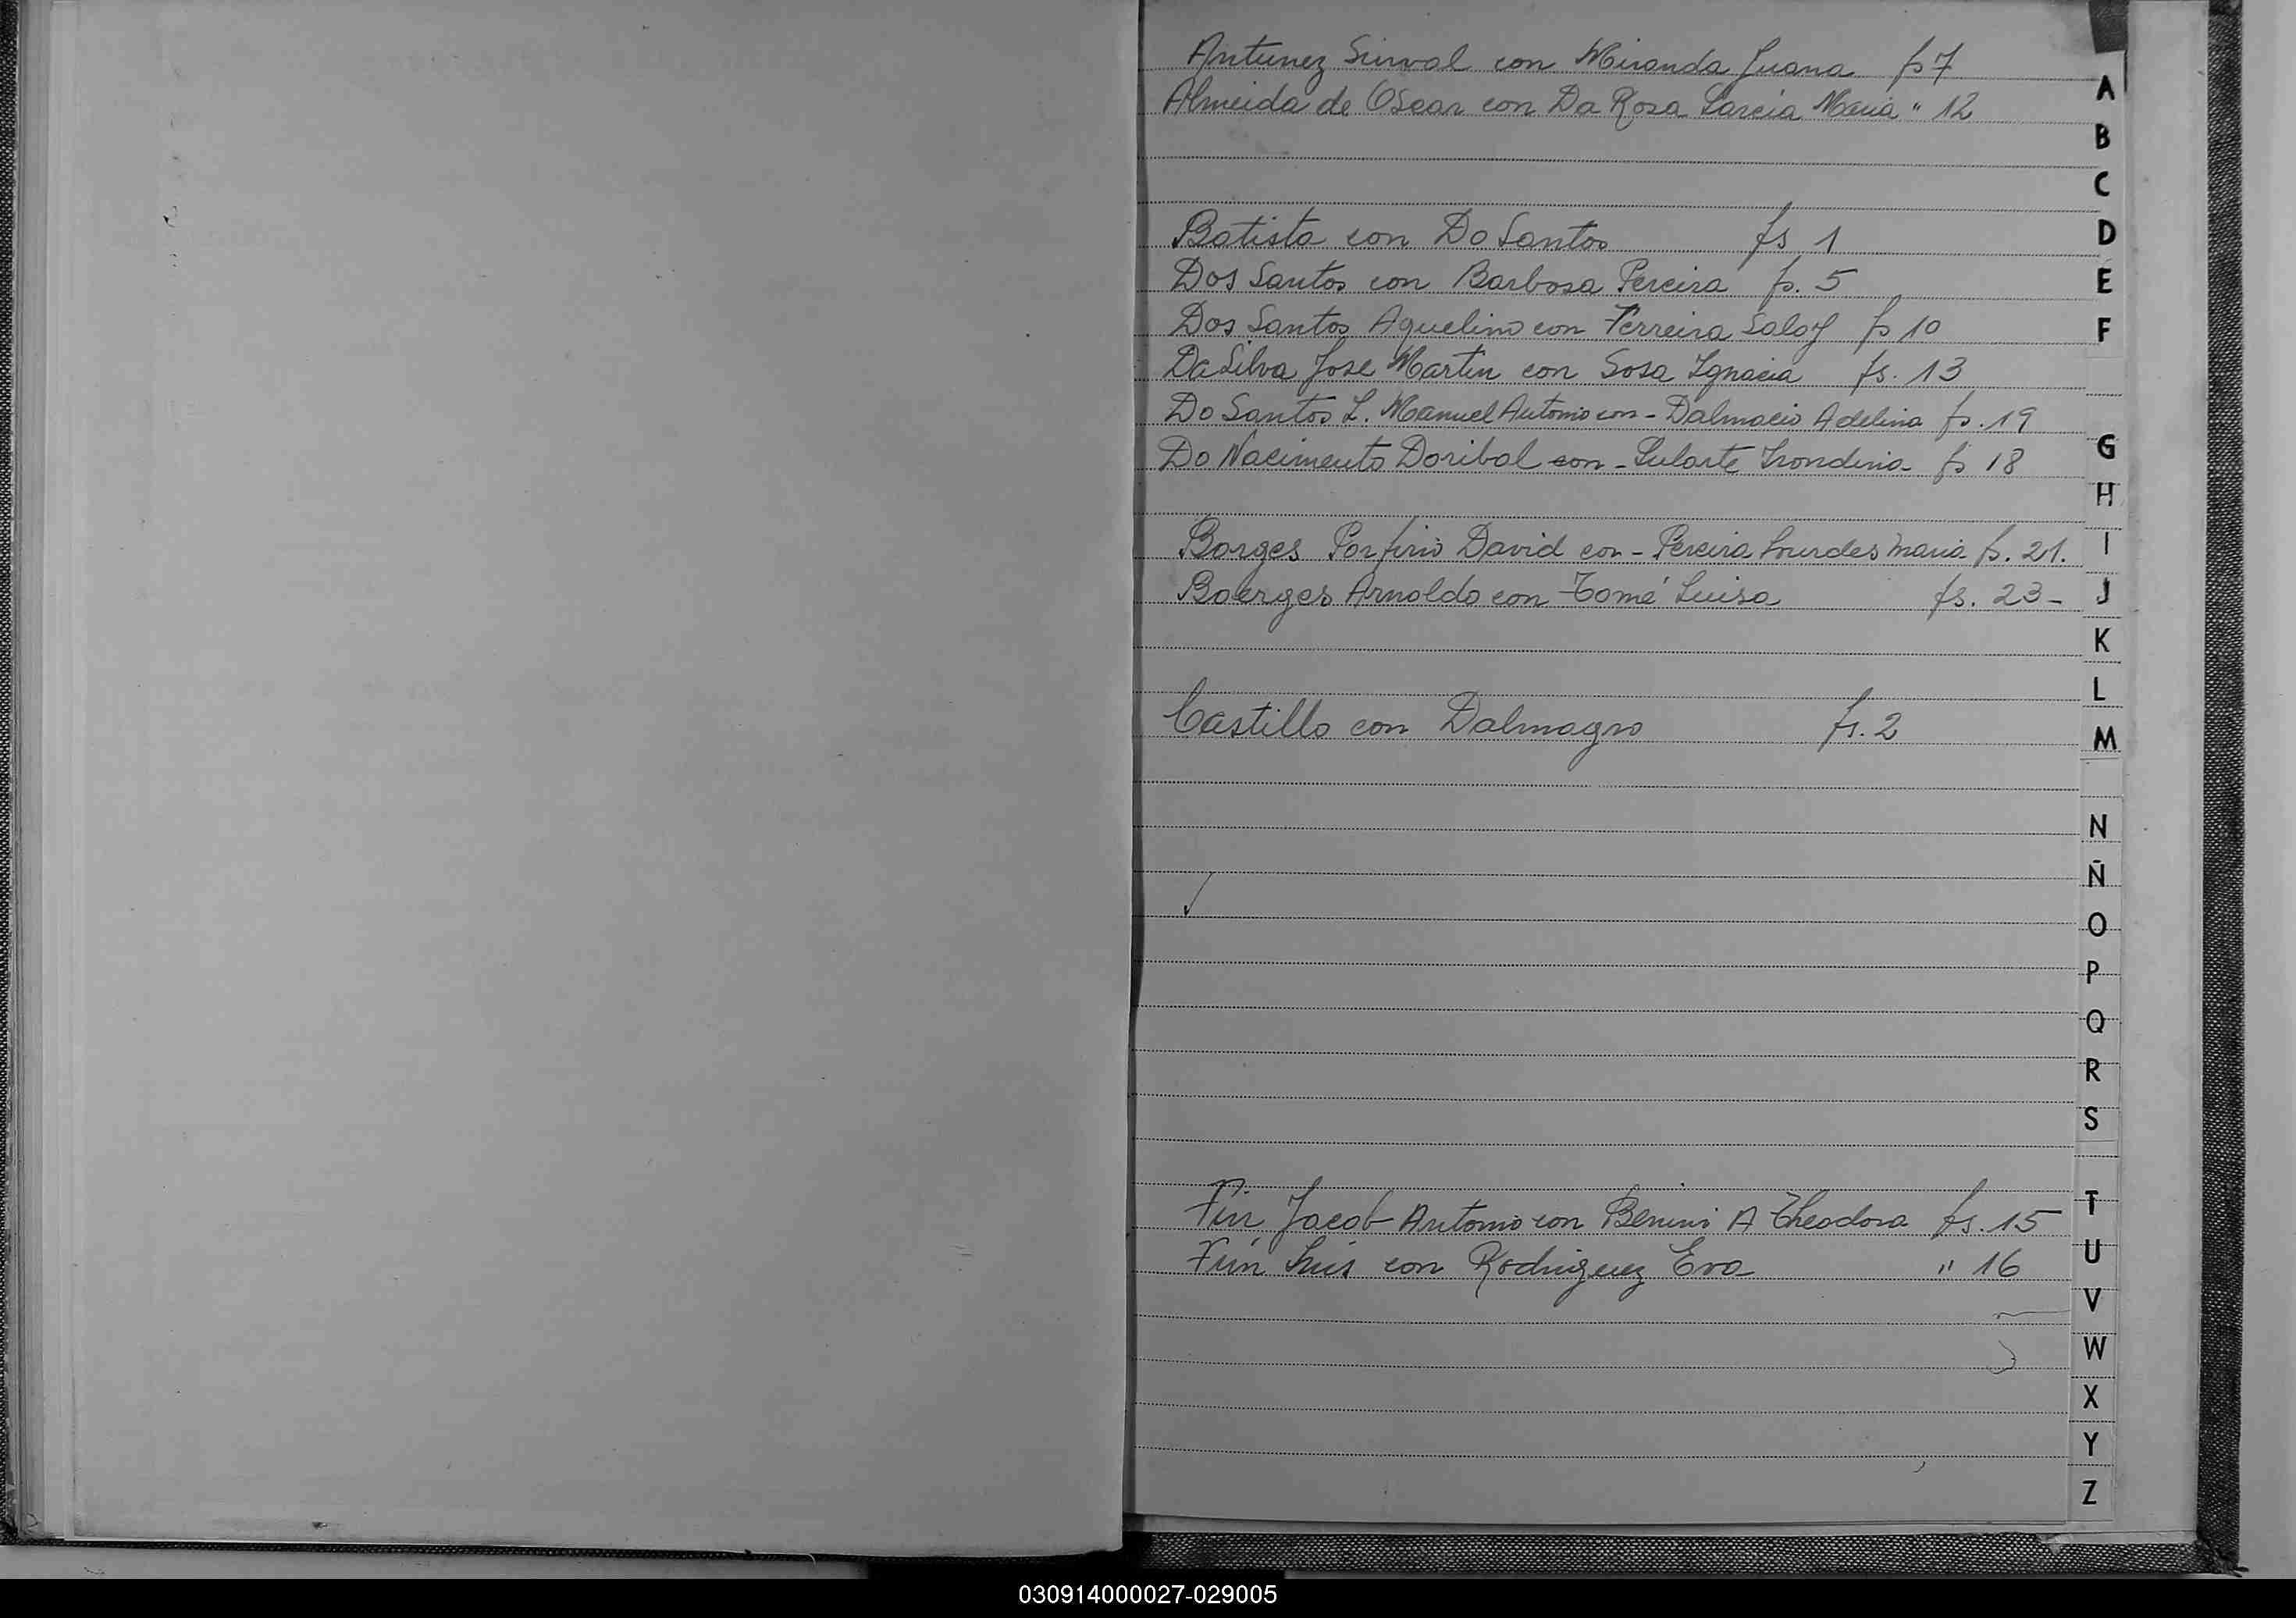 Antunez Sirval con Miranda Juana fs 7
Almeida de Oscar con Da Rosa Garcia Maria " 12
A
B
C
Batista con Do Santos fs 1
D
Dos Santos con Barbosa Pereira fs. 5
E
Dos Santos Aquelino con Ferreira Saloy fs 10
F
Da Silva Jose Martin con Sosa Ignacia fs. 13
Do Santos L. Manuel Antonio con - Dalmacio Adelina fs. 19
G
Do Nacimento Doribal con - Sularte fs 18
H
Borges Porfirio David con - Pereira Lourdes Maria fs. 21.
I
Boerges Arnoldo con Tomé Luisa fs. 23 -
J
K
L
Castillo con Dalmagro fs. 2
M
N
Ñ
O
P
Q
R
S
Fin Jacob Antonio con Benini A Theodora fs. 15
T
Fin Luis con Rodriguez Eva " 16
U
V
W
X
Y
Z
030914000027-029005